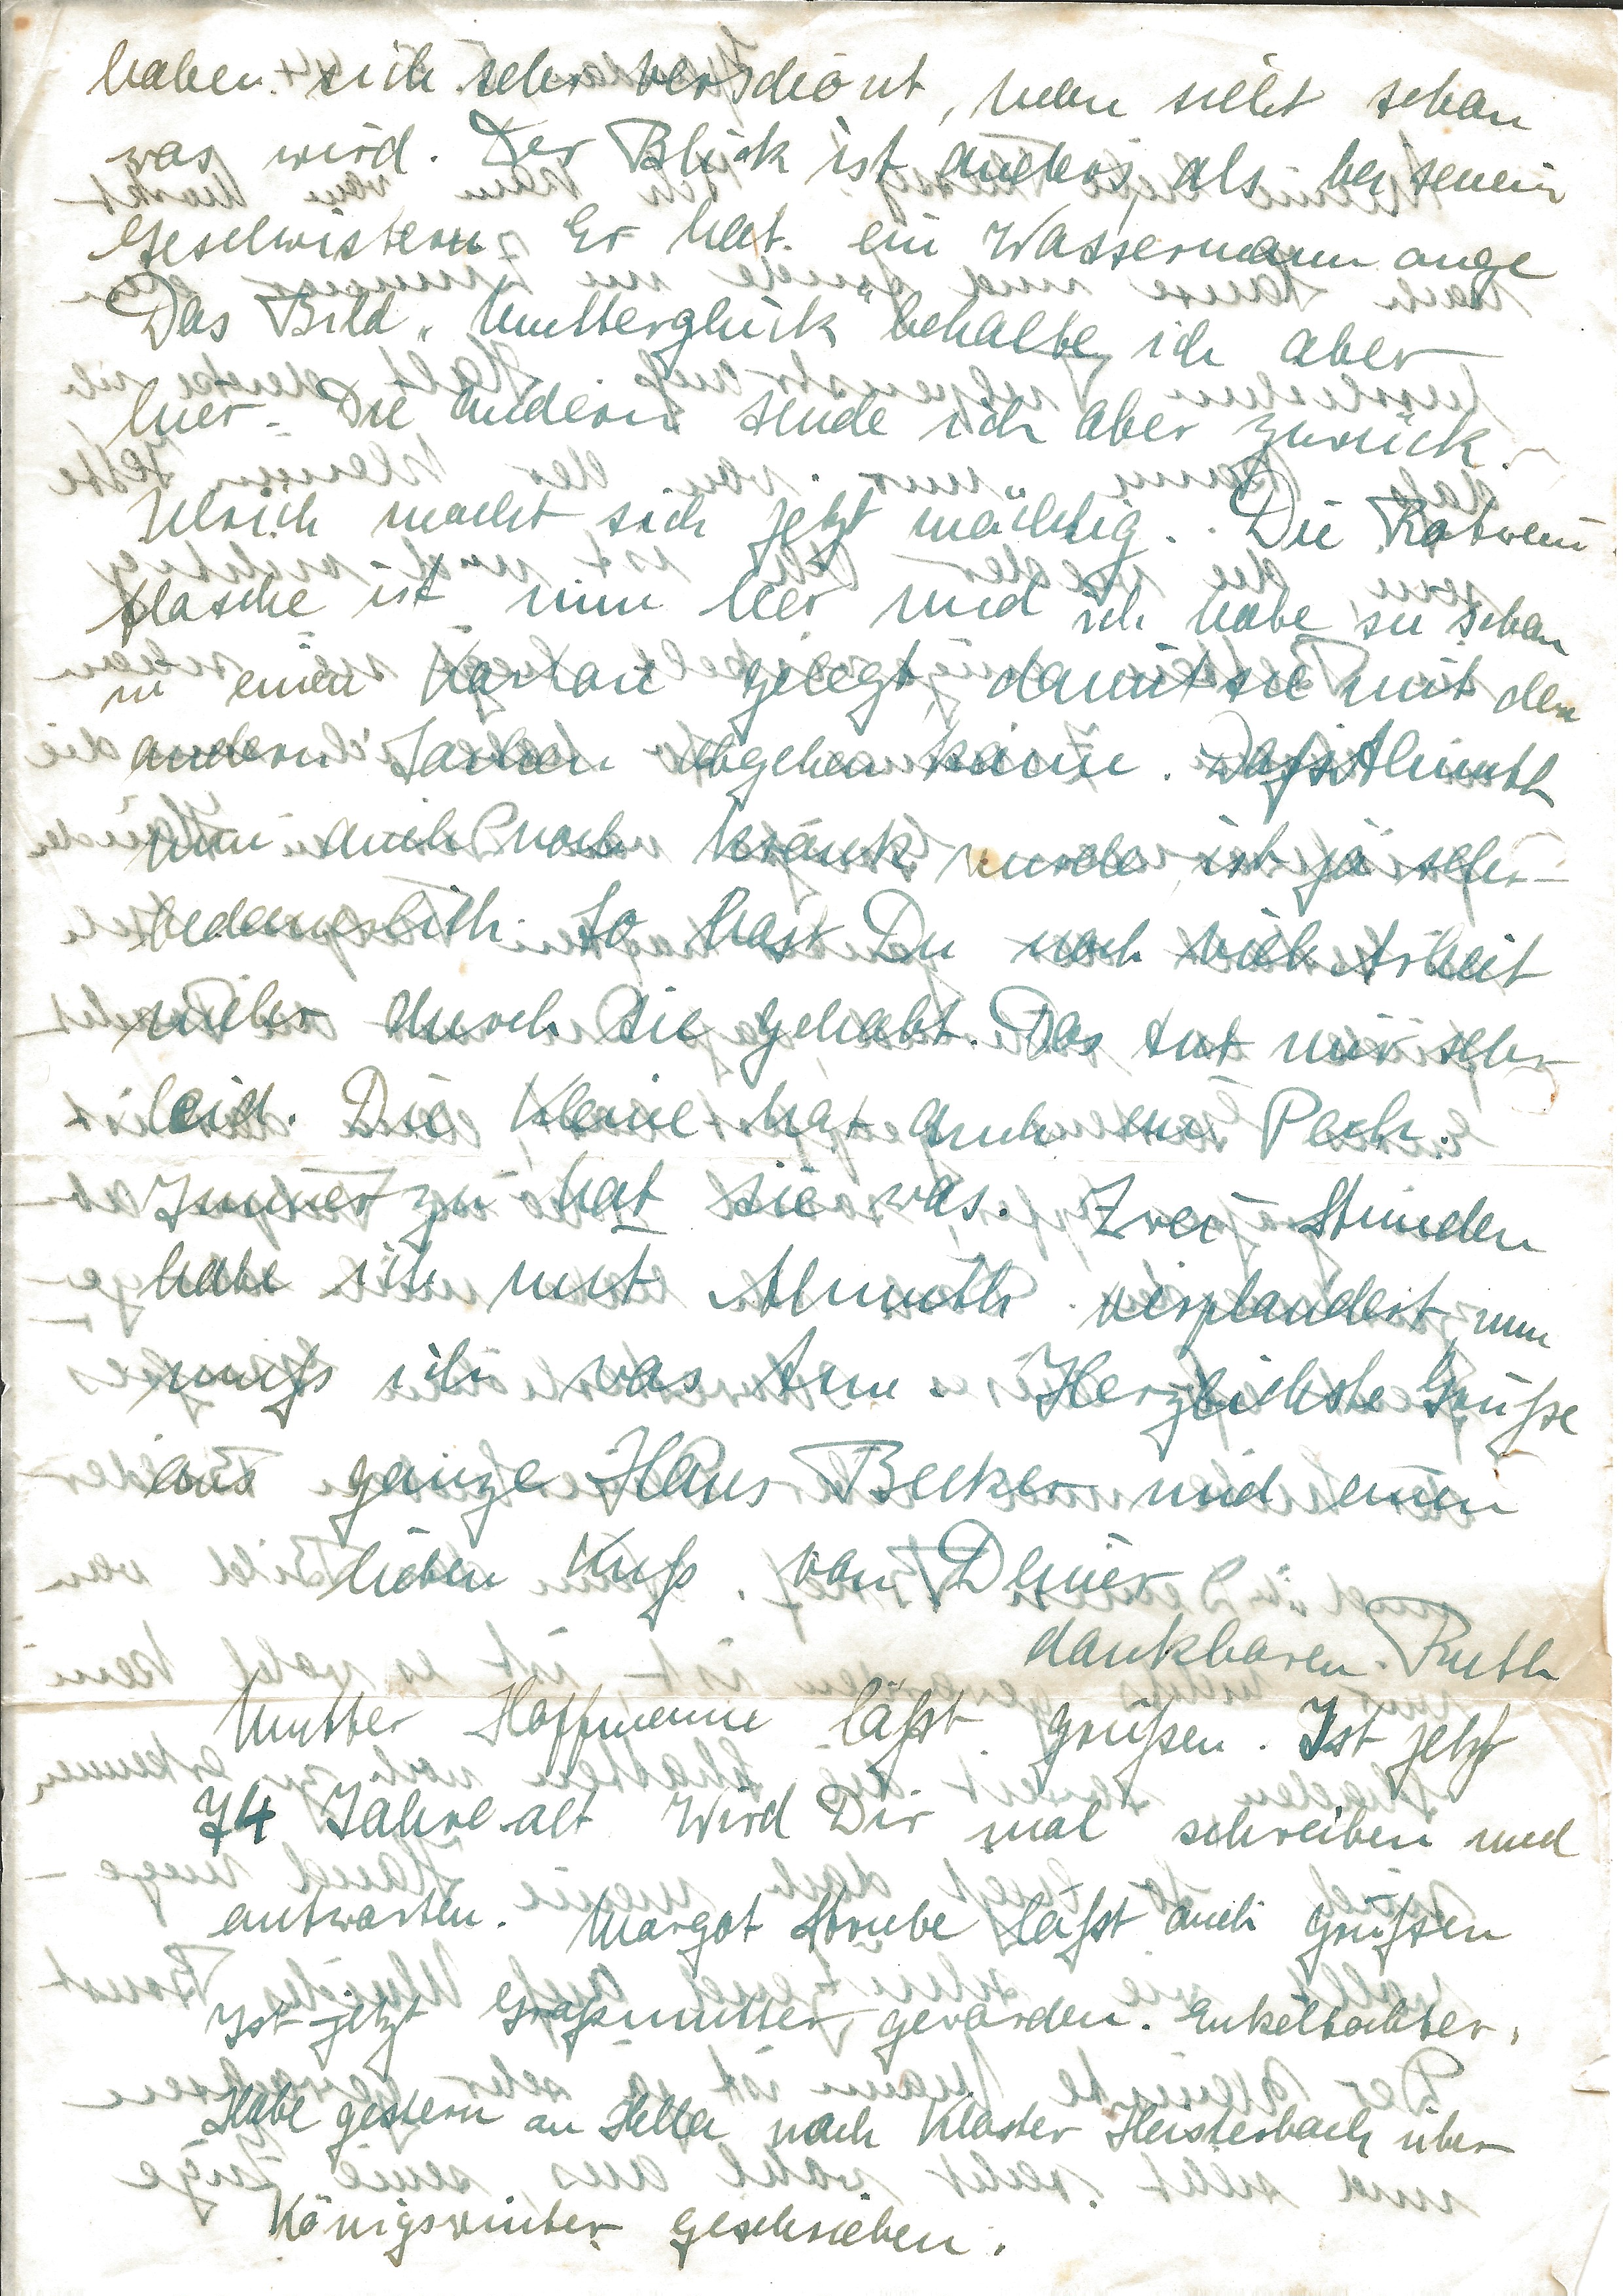 haben sich sehr verschönt, man sieht schon
was wird. Der Blick ist anders als bei seinen
Geschwistern. Er hat ein Wassermannauge
Das Bild "Mutterglück" behalte ich aber
hier. Die anderen sende ich aber zurück.
Ulrich macht sich jetzt mächtig. Die Rotwein-
flasche ist nun hier und ich habe sie schon
in einen Karton gelegt, damit sie mit den
andern Sachen abgehen kann. Daß Almuth
nun auch noch krank wurde, ist ja sehr
bedauerlich. So hast Du noch viel Arbeit
mehr durch sie gehabt. Das tut mir sehr
leid. Die Kleine hat auch ein Pech.
Immerzu hat sie was. Zwei Stunden
habe ich mit Almuth verplaudert, nun
muß ich was tun. Herzlichste Grüße
ans ganze Haus Becker und einen
lieben Kuß von Deiner
dankbaren Ruth
Mutter Hoffmann läßt grüßen. Ist jetzt
74 Jahre alt Wird Dir mal schreiben und
antworten. Margot Strube läßt auch grüßen
Ist jetzt Großmutter geworden. Enkeltochter.
Habe gestern an Hella nach Kloster Heisterbach über
Königswinter geschrieben.